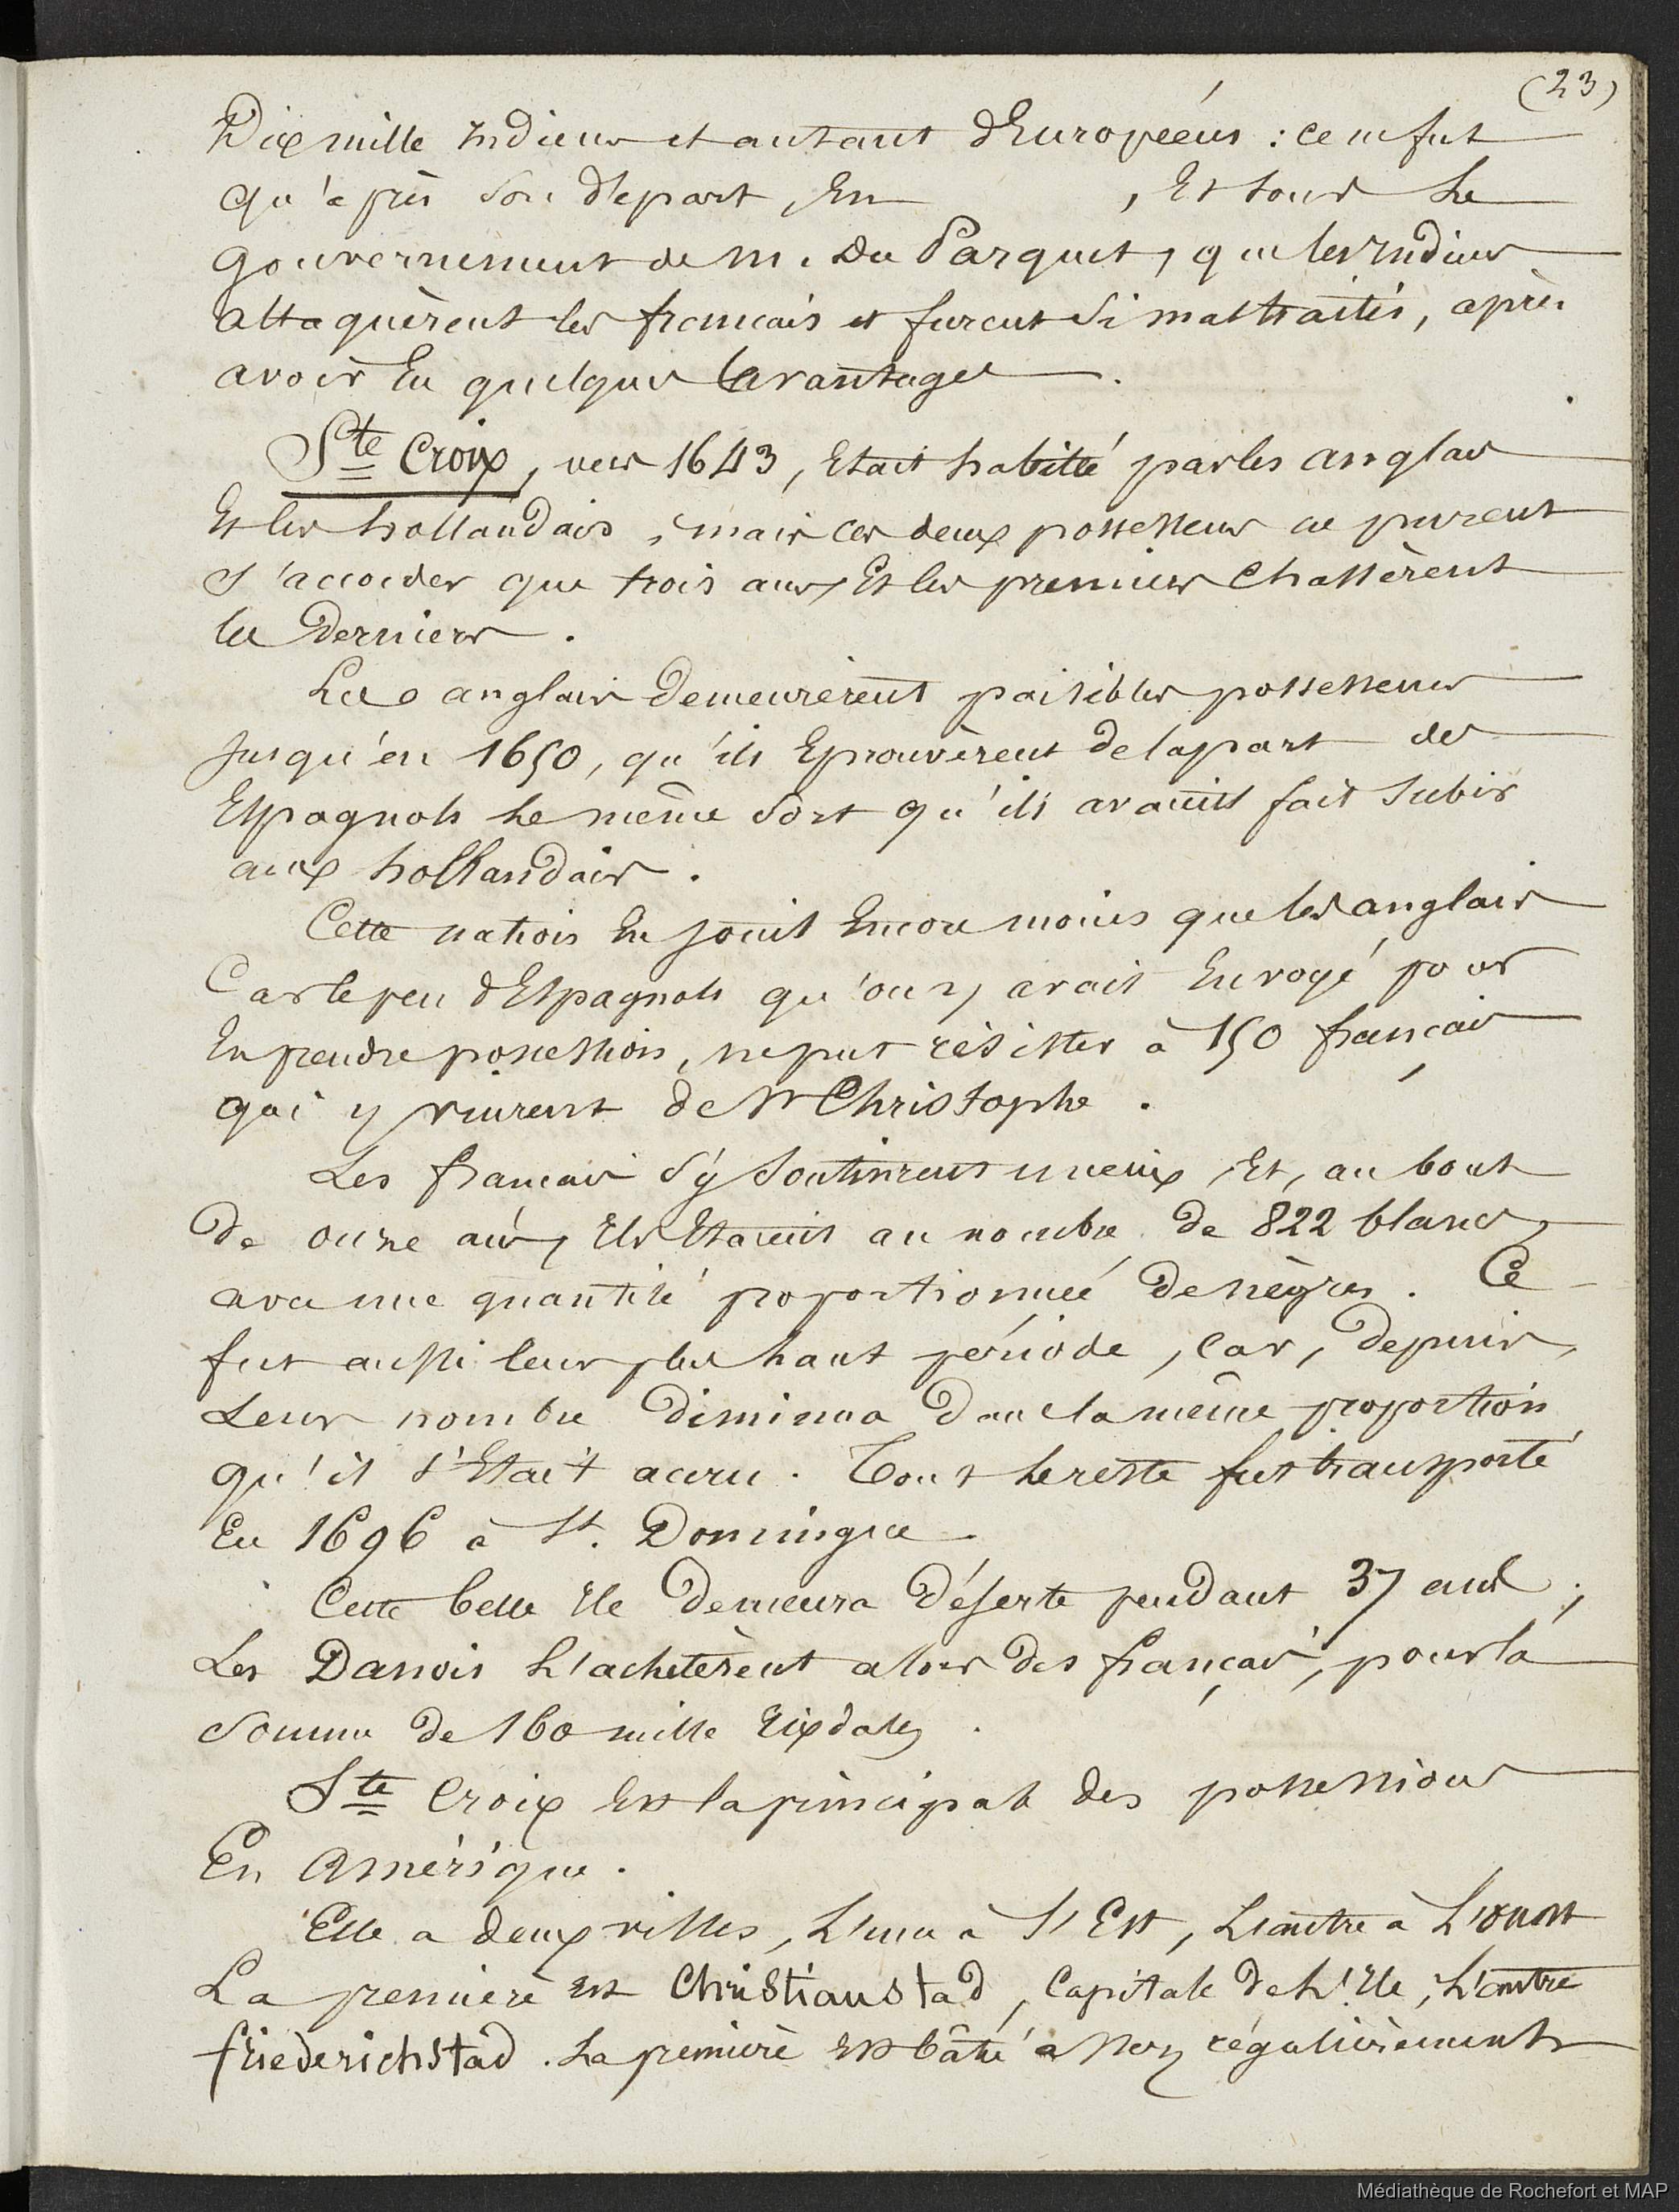 (23)
Dix mille Indiens et autant d'Européens : ce ne fut
qu'après son départ, En , Et sous le
gouvernement de M. Du Parquet, que les Indiens
attaquèrent les francais et furent si maltraités, après
avoir Eu quelques avantages.
Ste Croix, vers 1643, Etait habitté par les anglais
Et les hollandais, mais ces deux possesseurs ne purent
s'accorder que trois ans, Et les premiers chassèrent
les Derniers.
Les anglais Demeurèrent paisibles possesseurs
Jusqu'en 1650, qu'ils Eprouvèrent de la part des
Espagnols le même sort qu'ils avaient fait subir
aux hollandais.
Cette nation En jouit Encore moins que les anglais
Car le peu d'Espagnols qu'on y avait Envoyé pour
En prendre possession, ne put résister à 150 français
qui y vinrent de St Christophe.
Les francais s'y soutinrent mieux, Et, au bout
De onze ans, Ils Etaient au nombre de 822 blancs,
avec une quantité proportionnée De nègres. Ce
fut aussi leur plus haut période, Car, Depuis,
Leur nombre Diminua Dans la même proportion
qu'il s'Etait accru. Tout le reste fut transporté
En 1696 à St. Domingue
Cette belle Ile Demeura Déserte pendant 37 ans ;
Les Danois l'achetèrent alors des français, pour la
Somme de 160 mille rixdales.
Ste Croix Est la principale des possessions
En Amérique.
Elle a deux villes, L'une à l'Est, L'autre à L'ouest
La première est Christianstad, Capitale de l'Ile, L'autre
friederichstad. La première Est bâtie assez régulièrement
Médiathèque de Rochefort et MAP